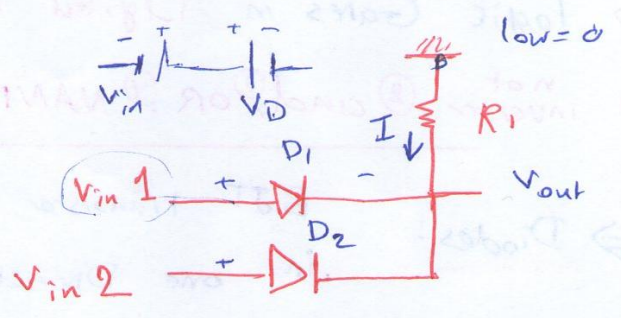 low = 0
- + + -
Vin VD
R1
I
D1
Vin 1 + - Vout
D2
Vin 2 +